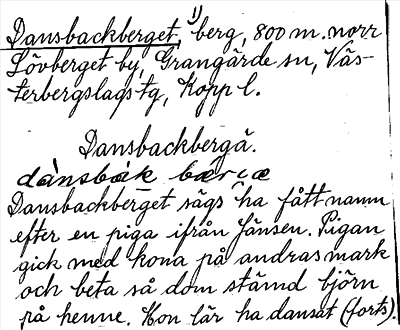 Dansbackberget,¹⁾ berg, 800 m. norr
Lövberget by, Grangärde sn, Väs-
terbergslags tg, Kopp l.
Dansbackbergä.
dánsbak bærcæ
Dansbackberget sägs ha fått namn
efter en piga ifrån Jänsen. Pigan
gick med kona på andras mark
och beta så dom stämd björn
på henne. Hon lär ha dansat (forts).